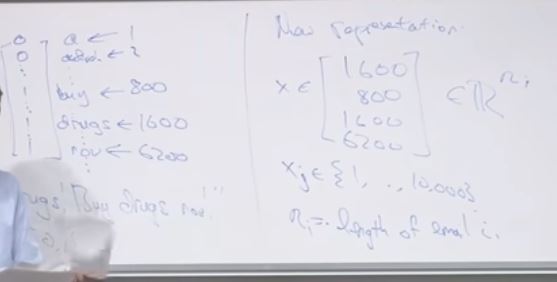 0 a ← 1
0 ← 2
⋮ ⋮
1 buy ← 800
⋮
1 drugs ← 1600
⋮
1 now ← 6200
⋮
ugs! Buy drugs now!"
New representation:
x ∈ [1600 800 1600 6200] ∈ ℝ^{n_i}
x_j ∈ {1, .., 10,000}
n_i = length of email i.